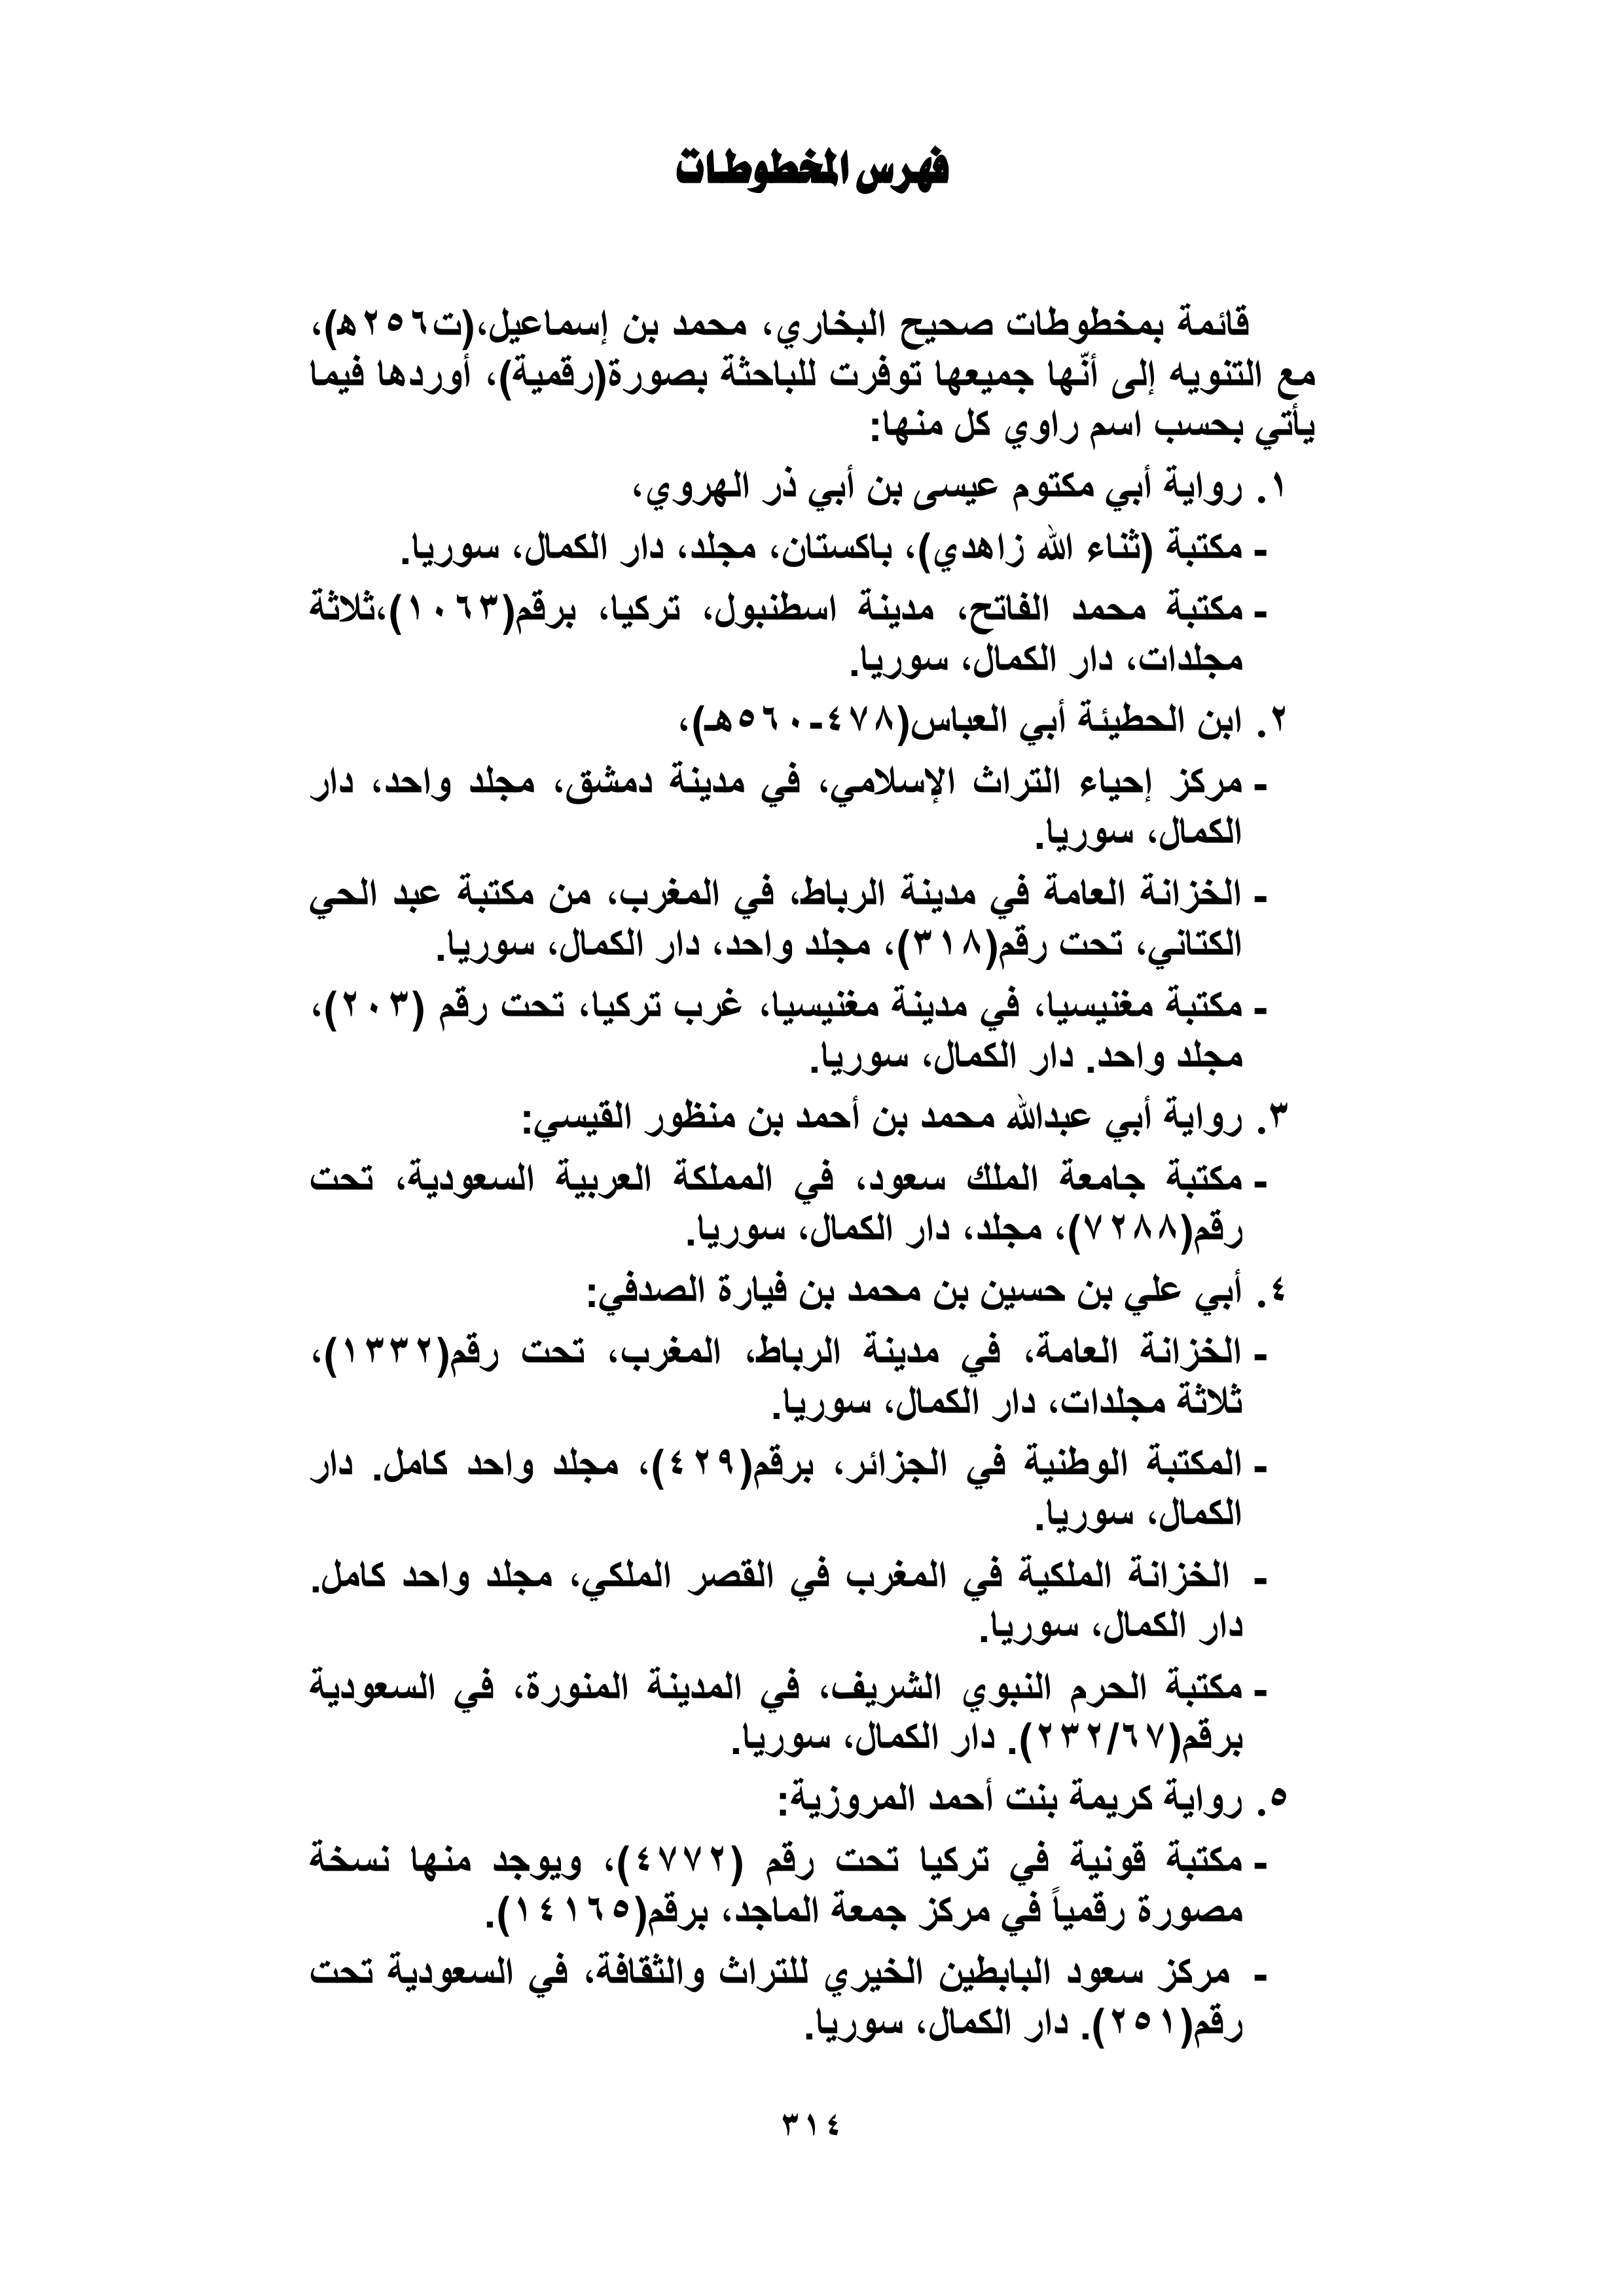 فهرس المخطوطات
قائمة بمخطوطات صحيح البخاري، محمد بن إسماعيل،(ت٢٥٦ه)،
مع التنويه إلى أنّها جميعها توفرت للباحثة بصورة(رقمية)، أوردها فيما
يأتي بحسب اسم راوي كل منها:
١. رواية أبي مكتوم عيسى بن أبي ذر الهروي،
- مكتبة (ثناء الله زاهدي)، باكستان، مجلد، دار الكمال، سوريا.
- مكتبة محمد الفاتح، مدينة اسطنبول، تركيا، برقم(١٠٦٣)،ثلاثة
مجلدات، دار الكمال، سوريا.
٢. ابن الحطيئة أبي العباس(٤٧٨-٥٦٠هـ)،
- مركز إحياء التراث الإسلامي، في مدينة دمشق، مجلد واحد، دار
الكمال، سوريا.
- الخزانة العامة في مدينة الرباط، في المغرب، من مكتبة عبد الحي
الكتاني، تحت رقم(٣١٨)، مجلد واحد، دار الكمال، سوريا.
- مكتبة مغنيسيا، في مدينة مغنيسيا، غرب تركيا، تحت رقم (٢٠٣)،
مجلد واحد. دار الكمال، سوريا.
٣. رواية أبي عبدالله محمد بن أحمد بن منظور القيسي:
- مكتبة جامعة الملك سعود، في المملكة العربية السعودية، تحت
رقم(٧٢٨٨)، مجلد، دار الكمال، سوريا.
٤. أبي علي بن حسين بن محمد بن فيارة الصدفي:
- الخزانة العامة، في مدينة الرباط، المغرب، تحت رقم(١٣٣٢)،
ثلاثة مجلدات، دار الكمال، سوريا.
- المكتبة الوطنية في الجزائر، برقم(٤٢٩)، مجلد واحد كامل. دار
الكمال، سوريا.
- الخزانة الملكية في المغرب في القصر الملكي، مجلد واحد كامل.
دار الكمال، سوريا.
- مكتبة الحرم النبوي الشريف، في المدينة المنورة، في السعودية
برقم(٢٣٢/٦٧). دار الكمال، سوريا.
٥. رواية كريمة بنت أحمد المروزية:
- مكتبة قونية في تركيا تحت رقم (٤٧٧٢)، ويوجد منها نسخة
مصورة رقمياً في مركز جمعة الماجد، برقم(١٤١٦٥).
- مركز سعود البابطين الخيري للتراث والثقافة، في السعودية تحت
رقم(٢٥١). دار الكمال، سوريا.
٣١٤